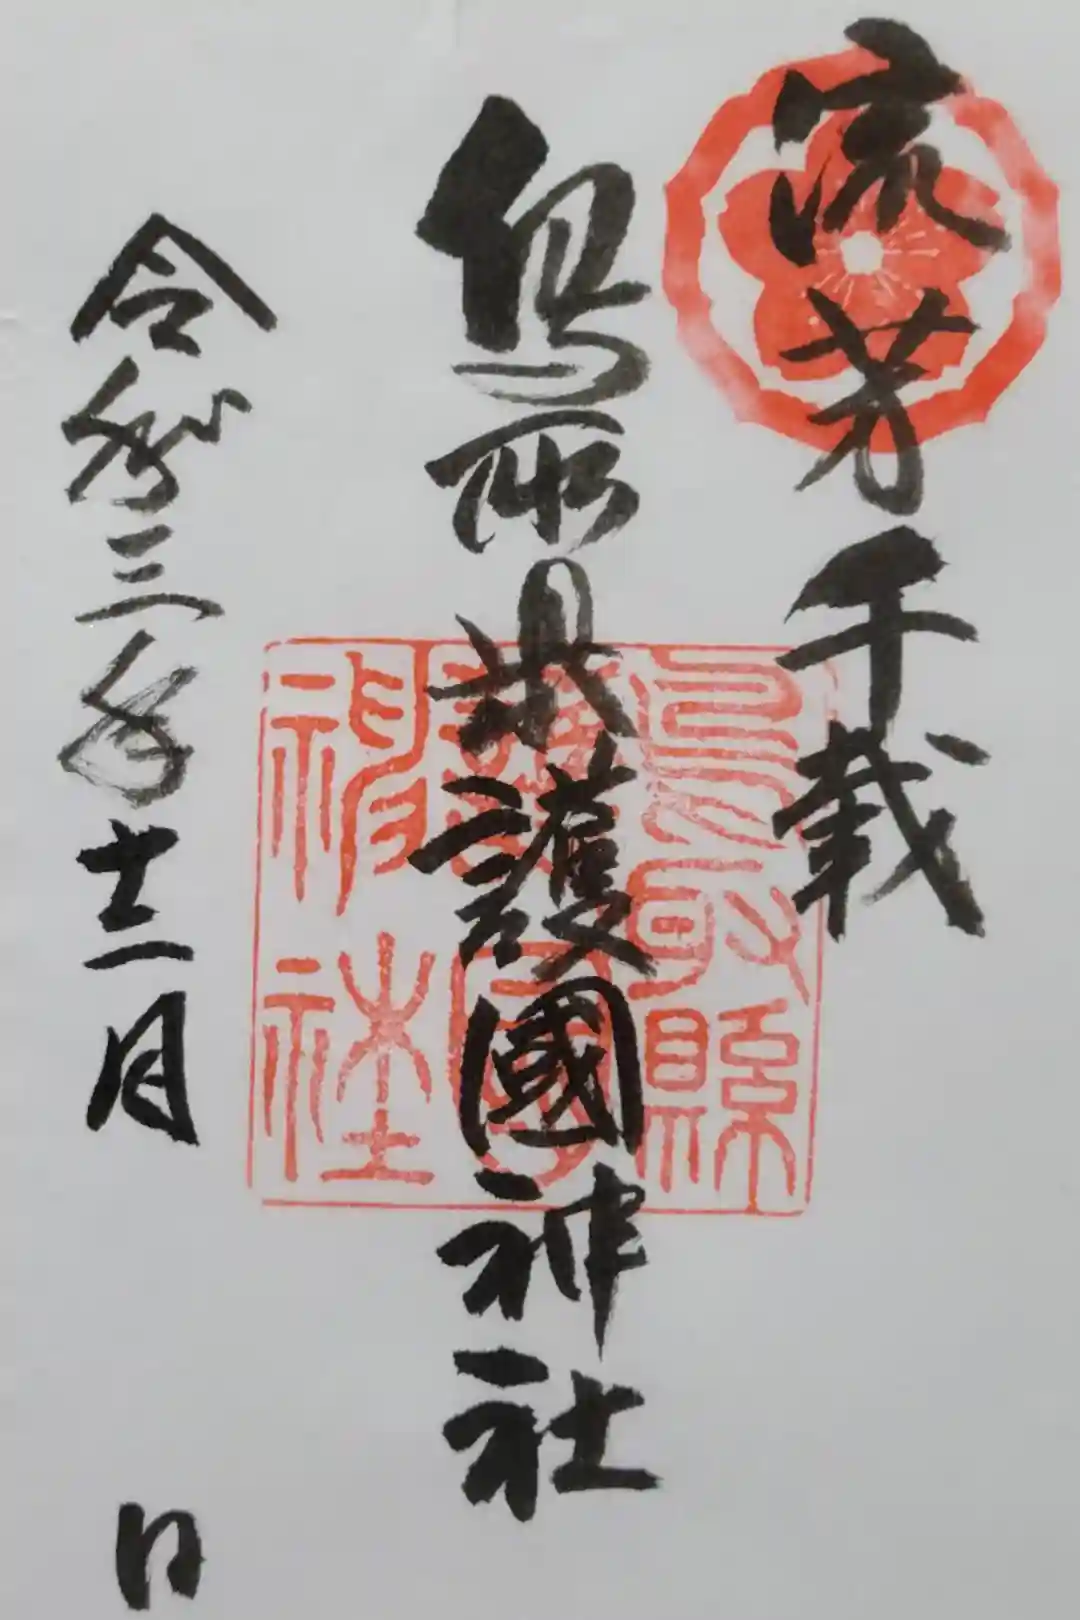 流芳千載
鳥取県護國神社
鳥取縣護國神社
令和三年十二月 日